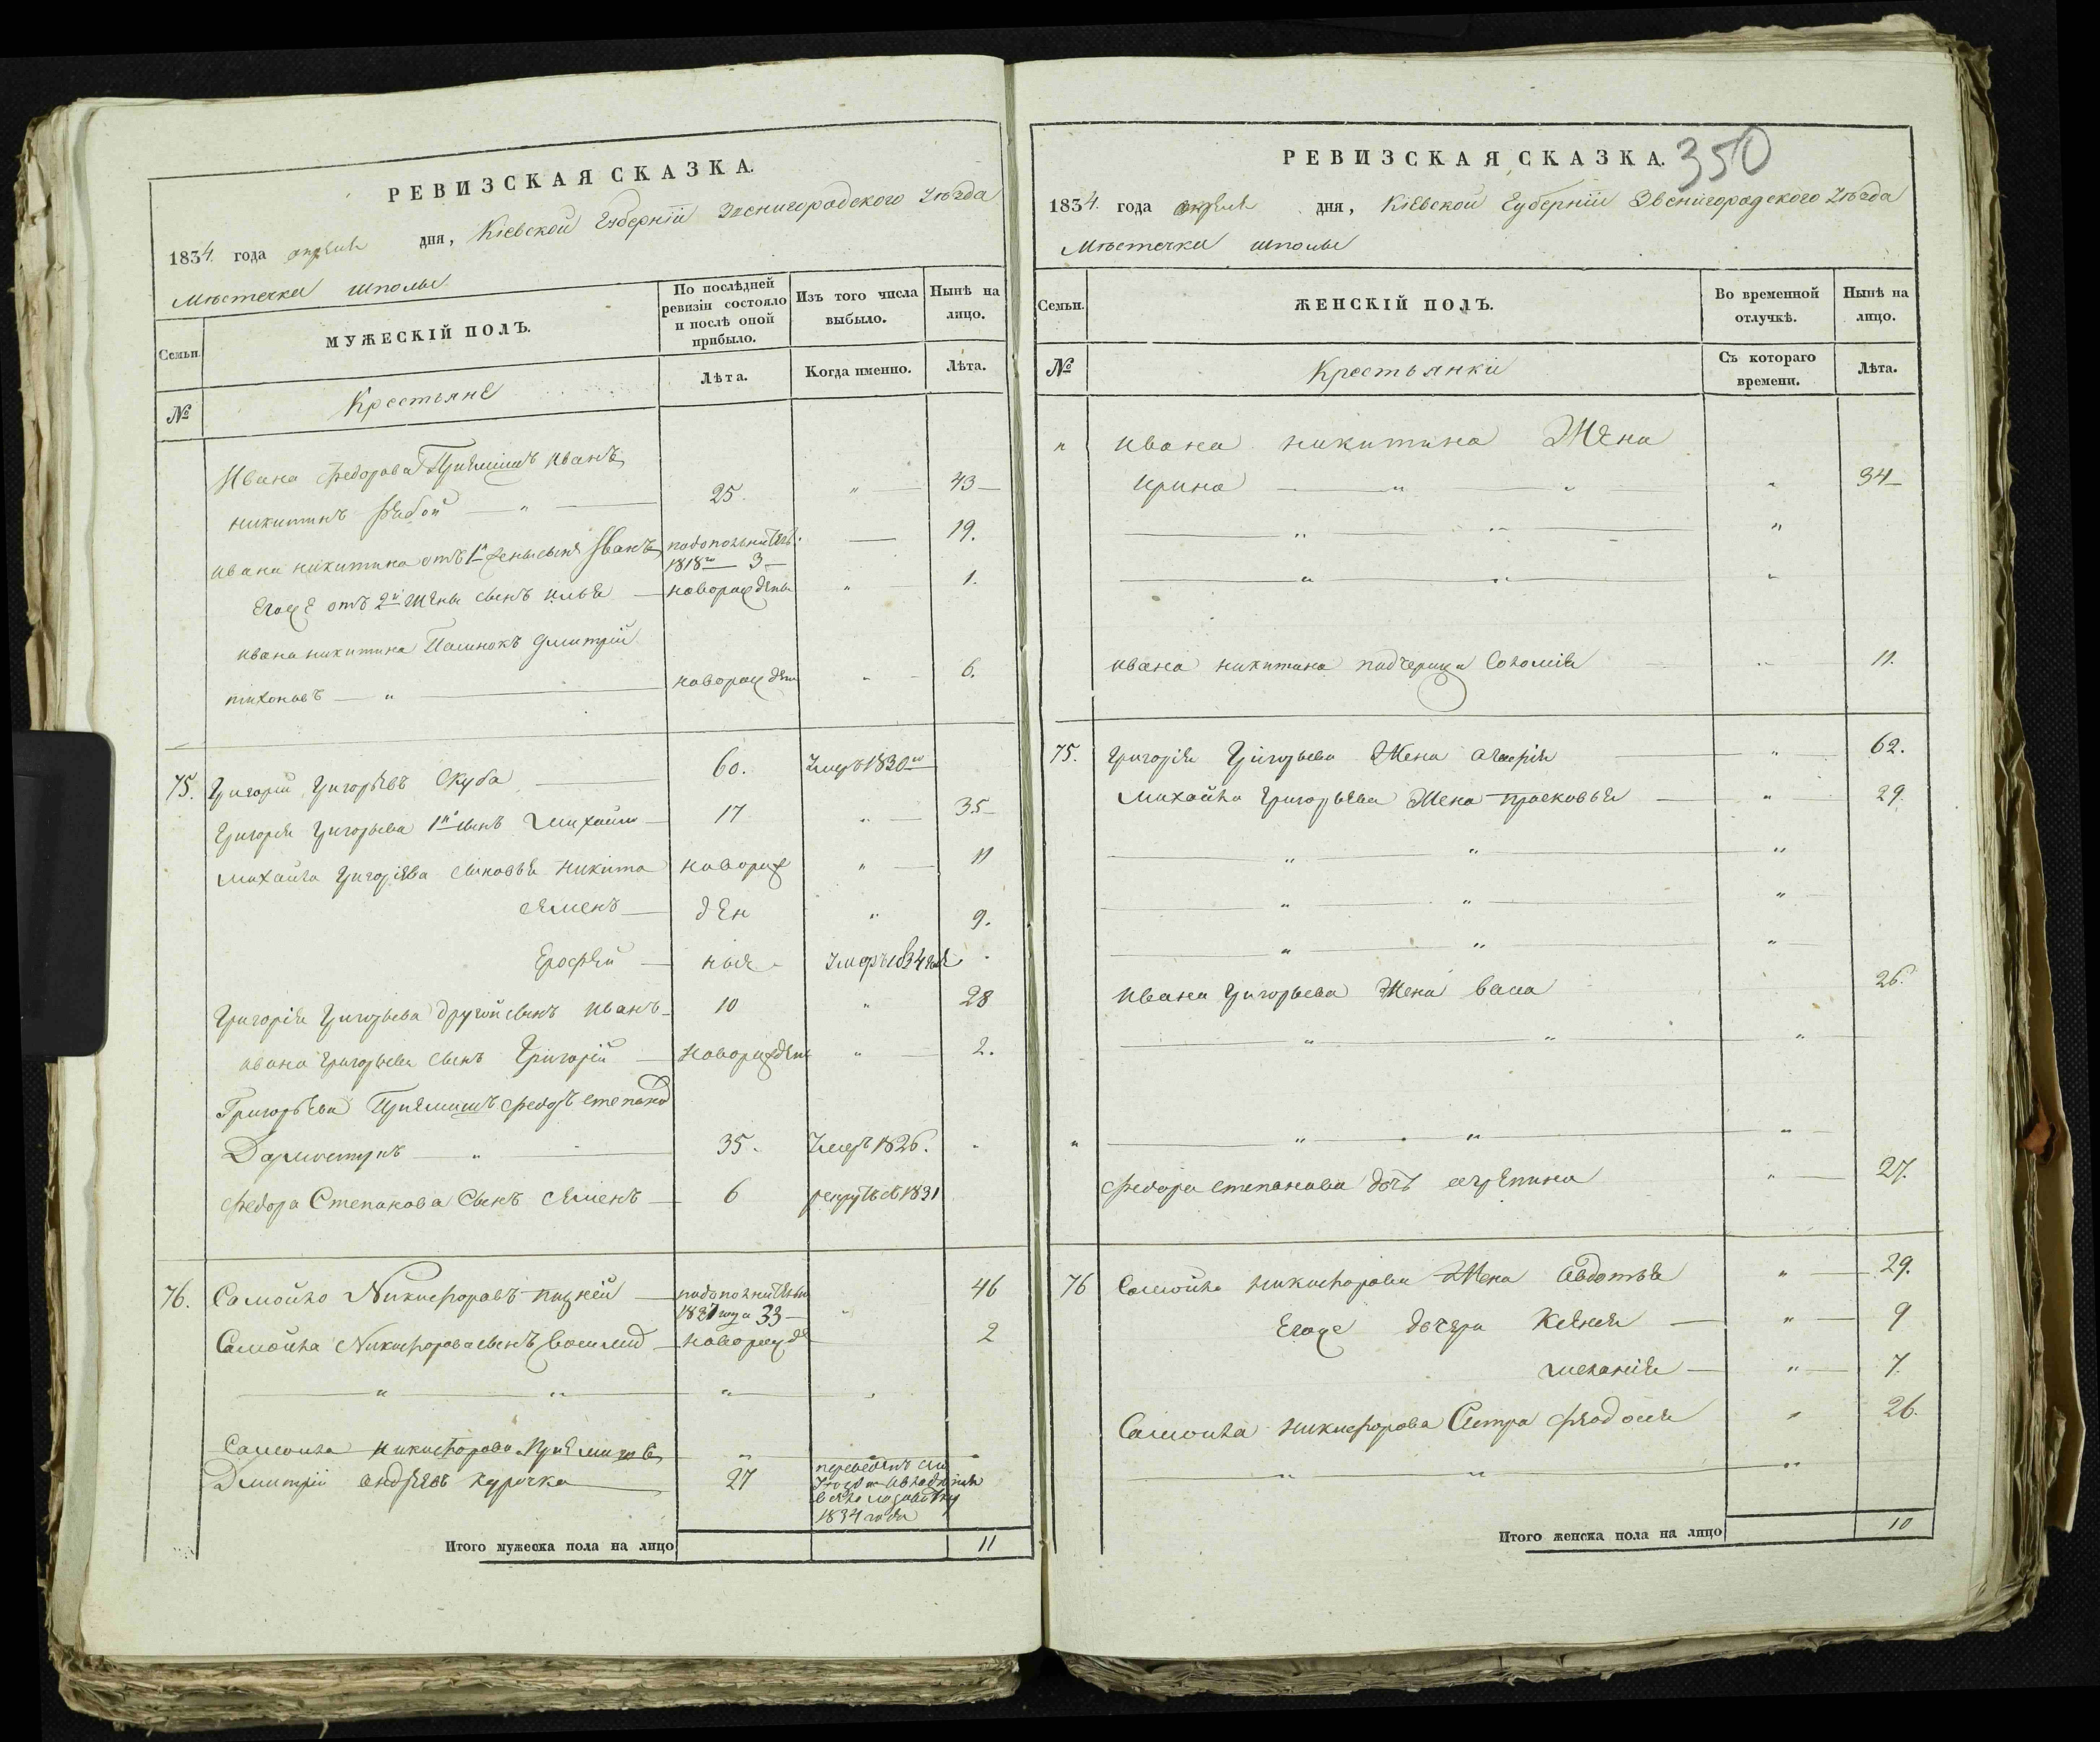 РЕВИЗСКАЯ СКАЗКА.
1834. года апреля дня, Кіевской Губерніи Звенигородского Уѣзда
Мѣстечка шполы
Семьи.
МУЖЕСКІЙ ПОЛЪ.
По послѣдней ревизіи состояло и послѣ оной прибыло.
Изъ того числа выбыло.
Нынѣ на лицо.
№
Крестьяне
Лѣта.
Когда именно.
Лѣта.
Ивана Федорова Приемышъ Иванъ
никитинъ Рабой — " — 25. " — 43 —
ивана никитина отъ 1й жены сынъ Иванъ подополнитель. 1818го 3 — 19.
Егоже отъ 2й Жены сынъ илья — новорожденъ " 1.
ивана никитина Пасынокъ Дмитрій
тихоновъ — " новорожден " 6.
75. Григорій Григорьевъ Скуба — 60. Умеръ 1830го
Григорія Григорьева 1й сынъ Михайло — 17 " — 35 —
Михайла Григорьева сыновья Никита новорож " — 11
Семенъ — ден " 9.
Ерофей — ныя Умеръ 1834 года
Григорія Григорьева другой сынъ Иванъ — 10 " 28
ивана Григорьева сынъ Григорій — новорожден " — 2.
Григорьева Приемышъ Федоръ степанов
Дармострукъ — " 35. Умеръ 1826.
Федора Степанова Сынъ Семенъ — 6 рекрутъ въ 1831
76. Самойло Никифоровъ — подополнительн 1827 года 33 — " 46
Самойла Никифорова сынъ Василий — новорожде 2
" " " "
Самойла Никифорова Приемышъ
Дмитрій Андреевъ курочка — 27 переведенъ
1834 года
Итого мужеска пола на лицо 11
РЕВИЗСКАЯ СКАЗКА. 350
1834. года апреля дня, Кіевской Губерніи Звенигородского Уѣзда
Мѣстечка шполы
Семьи.
ЖЕНСКІЙ ПОЛЪ.
Во временной отлучкѣ.
Нынѣ на лицо.
№
Крестьянки
Съ котораго времени.
Лѣта.
" Ивана никитина Жена
Ирина — " — " — " 34 —
" " "
" " "
ивана никитина падчерица Соломія " 11.
75. Григорія Григорьева Жена — " 62.
Михайла Григорьева Жена Прасковья — " 29.
" " "
" " "
" " "
Ивана Григорьева Жена Васа 26.
" " "
" " " "
Федора степанова дочь агрепина " — 27.
76 Самойла никифорова Жена Авдотья " — 29.
Егоже дочери Ксенія — " — 9
меланія — " — 7.
Самойла никифорова Сестра Федосія " 26.
" " "
Итого женска пола на лицо 10